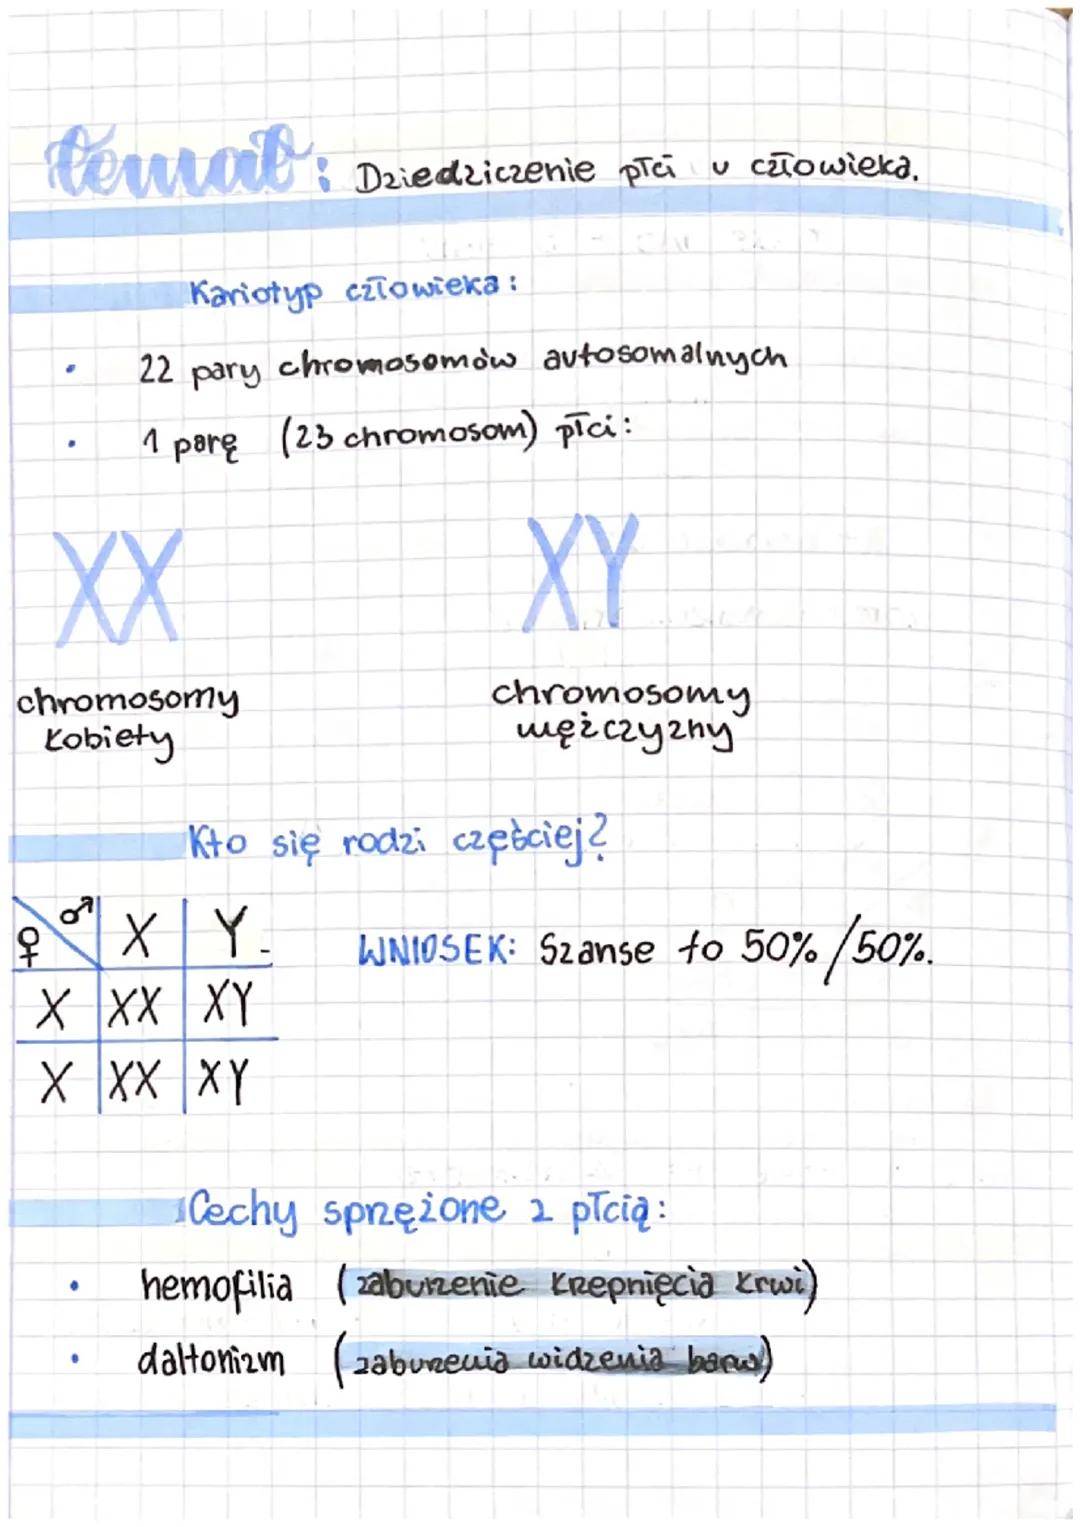 temat: Dziedziczenie płci u człowieka.
Kariotyp człowieka:
• 22 pary chromosomów autosomalnych
• 1 parę (23 chromosom) płci:
XX XY
chromosomy chromosomy
kobiety mężczyzny
Kto się rodzi częściej?
♀ ♂ X Y
X XX XY
X XX XY
WNIOSEK: Szanse to 50%/50%.
Cechy sprzężone z płcią:
• hemofilia (zaburzenie krzepnięcia krwi)
• daltonizm (zaburzenia widzenia barw)